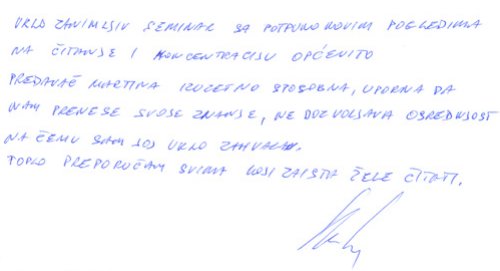 VRLO ZANIMLJIV SEMINAR SA POTPUNO NOVIM POGLEDIMA
NA ČITANJE I KONCENTRACIJU OPĆENITO
PREDAVAČ MARTINA IZUZETNO SPOSOBNA, UPORNA DA
NAM PRENESE SVOJE ZNANJE, NE DOZVOLJAVA OSREDNJOST
NA ČEMU SAM JOJ VRLO ZAHVALAN.
TOPLO PREPORUČAM SVIMA KOJI ZAISTA ŽELE ČITATI.